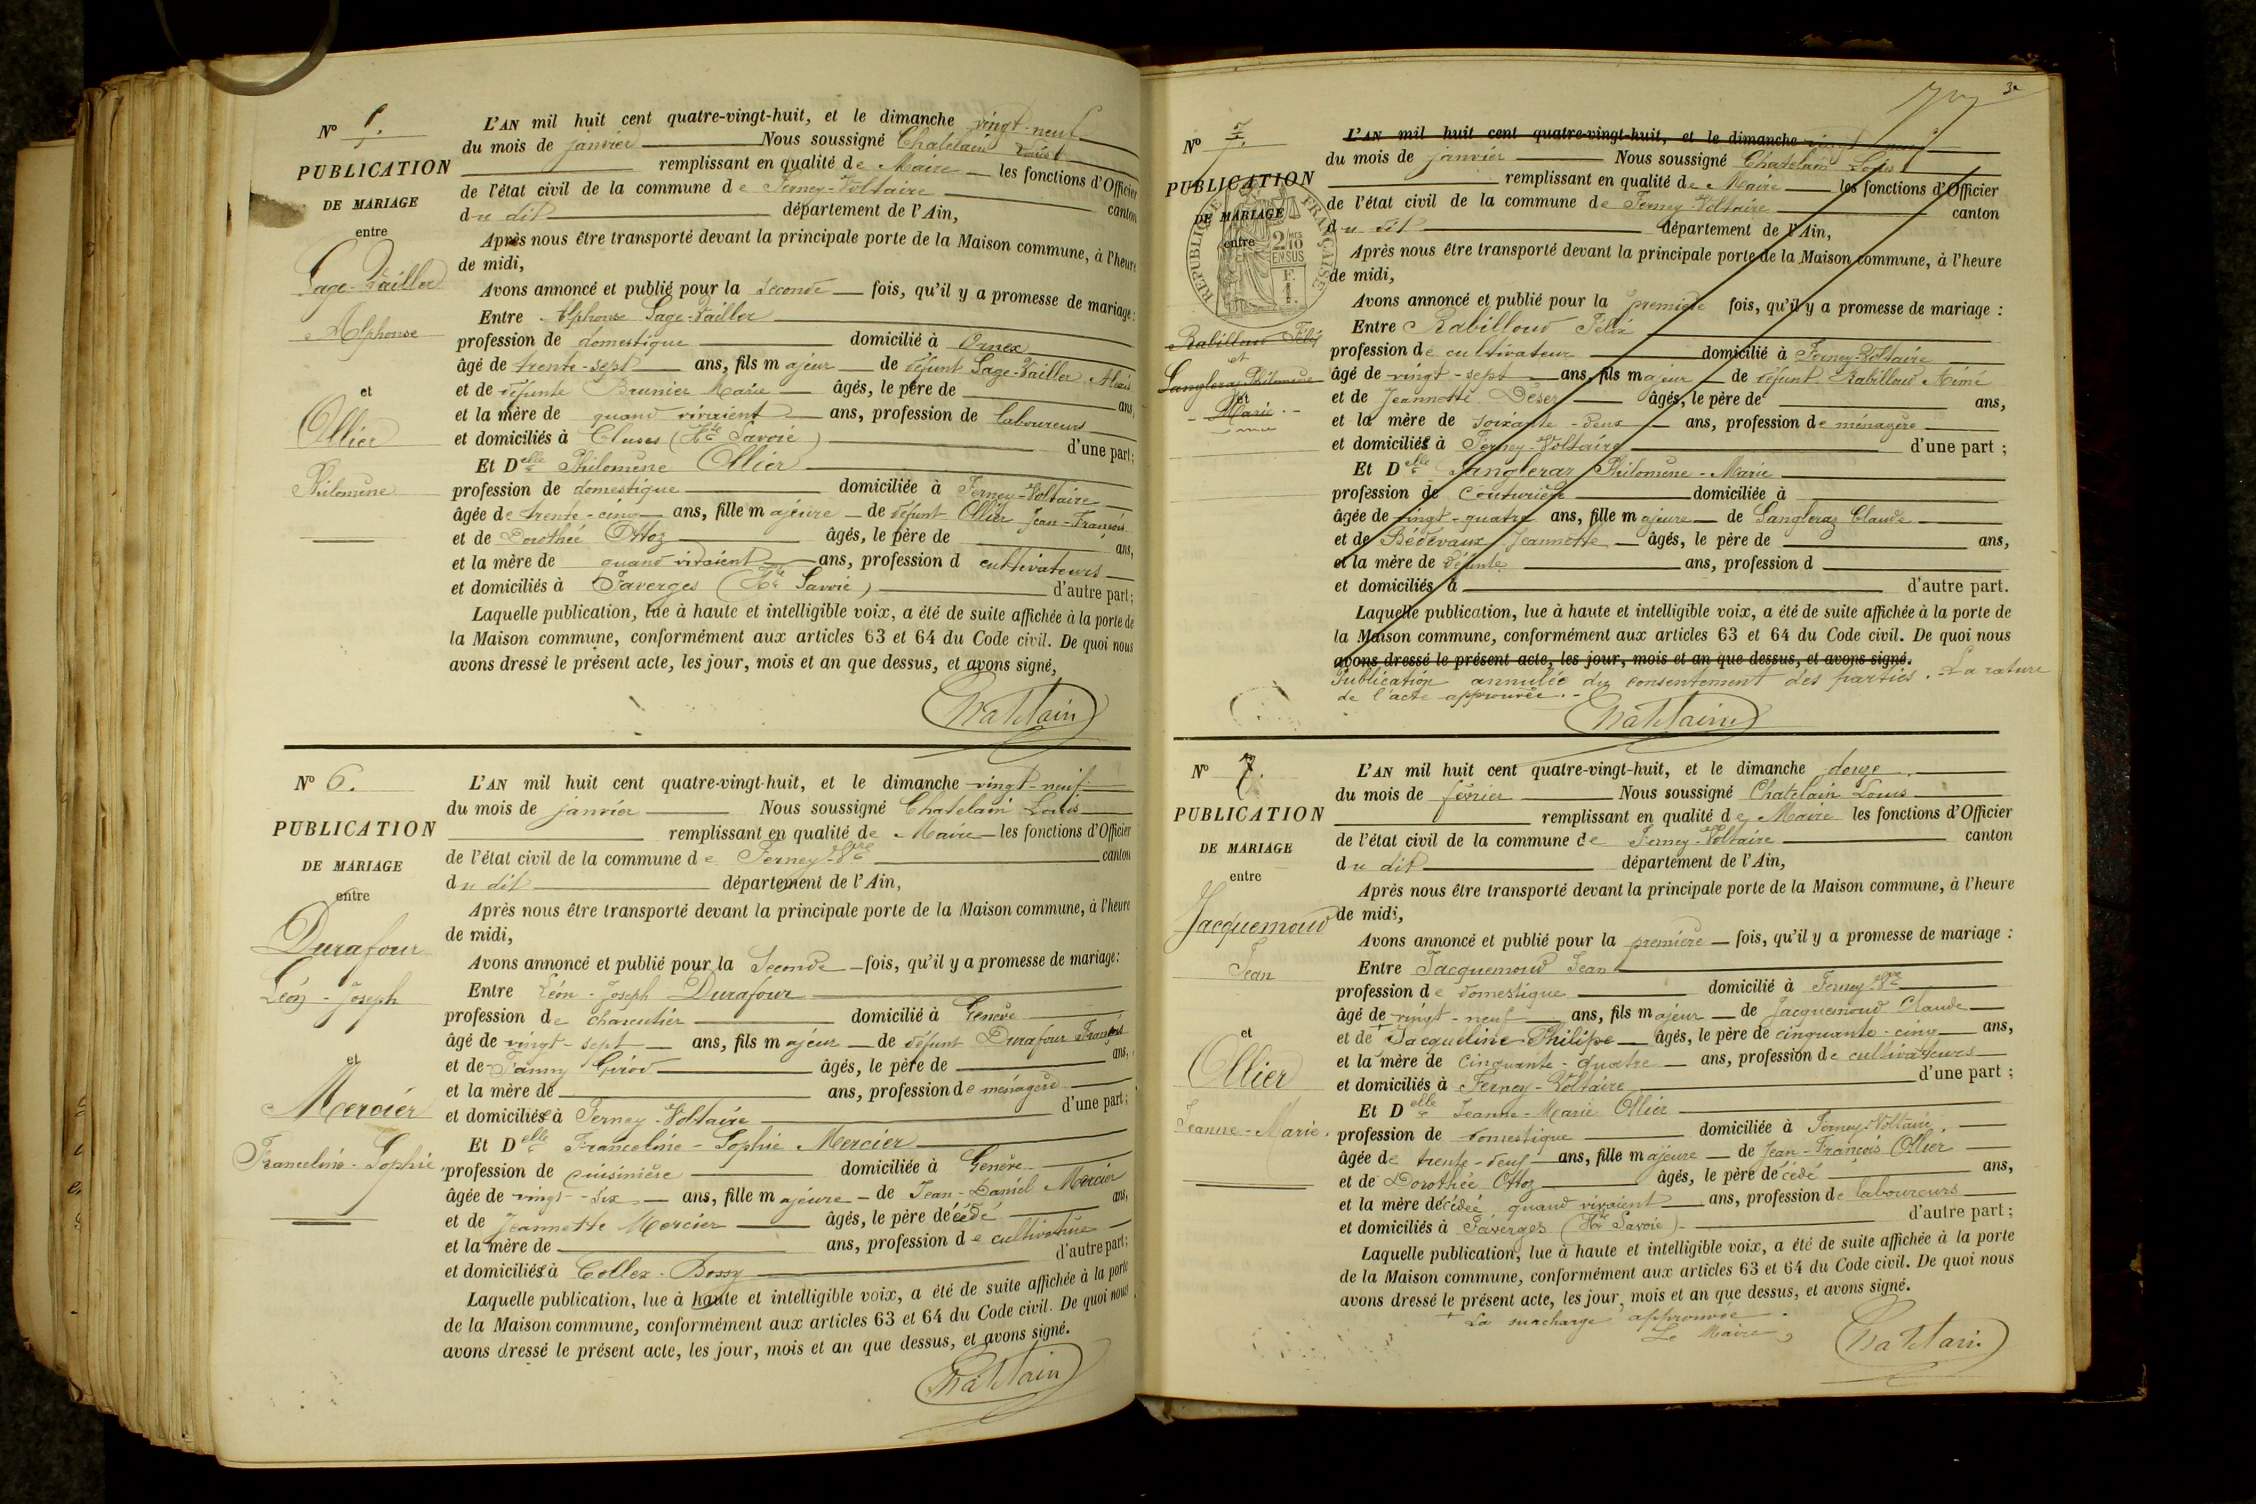 N° 5.
PUBLICATION
DE MARIAGE
entre
Sage-Vaillor
Alphonse
et
Ollier
Philomène
L'AN mil huit cent quatre-vingt-huit, et le dimanche vingt-neuf
du mois de janvier Nous soussigné Chatelain Louis
remplissant en qualité de Maire les fonctions d'Officier
de l'état civil de la commune de Ferney-Voltaire canton
du dit département de l'Ain,
Après nous être transporté devant la principale porte de la Maison commune, à l'heure
de midi,
Avons annoncé et publié pour la seconde fois, qu'il y a promesse de mariage :
Entre Alphonse Sage-Vaillor
profession de domestique domicilié à Ornex
âgé de trente-sept ans, fils majeur de défunt Sage-Vaillor Alexis
et de défunte Brunier Marie âgés, le père de ans,
et la mère de quand vivaient ans, profession de laboureurs
et domiciliés à Cluses (Hte Savoie) d'une part ;
Et Delle Philomène Ollier
profession de domestique domiciliée à Ferney-Voltaire
âgée de trente-cinq ans, fille majeure de défunt Ollier Jean-François
et de Dorothée Ottoz âgés, le père de ans,
et la mère de quand vivaient ans, profession d cultivateurs
et domiciliés à Faverges (Hte Savoie) d'autre part ;
Laquelle publication, lue à haute et intelligible voix, a été de suite affichée à la porte de
la Maison commune, conformément aux articles 63 et 64 du Code civil. De quoi nous
avons dressé le présent acte, les jour, mois et an que dessus, et avons signé,
Chatelain
N° 6.
PUBLICATION
DE MARIAGE
entre
Durafour
Léon-Joseph
et
Mercier
Franceline-Sophie
L'AN mil huit cent quatre-vingt-huit, et le dimanche vingt-neuf
du mois de janvier Nous soussigné Chatelain Louis
remplissant en qualité de Maire les fonctions d'Officier
de l'état civil de la commune de Ferney-Vre canton
du dit département de l'Ain,
Après nous être transporté devant la principale porte de la Maison commune, à l'heure
de midi,
Avons annoncé et publié pour la seconde fois, qu'il y a promesse de mariage :
Entre Léon-Joseph Durafour
profession de charcutier domicilié à Genève
âgé de vingt-sept ans, fils majeur de défunt Durafour François
et de Fanny Girod âgés, le père de ans,
et la mère de ans, profession de ménagère
et domiciliée à Ferney-Voltaire d'une part ;
Et Delle Franceline-Sophie Mercier
profession de cuisinière domiciliée à Genève
âgée de vingt-six ans, fille majeure de Jean-Daniel Mercier
et de Jeannette Mercier âgés, le père décédé ans,
et la mère de ans, profession de cultivatrice
et domiciliée à Collex-Bossy d'autre part ;
Laquelle publication, lue à haute et intelligible voix, a été de suite affichée à la porte
de la Maison commune, conformément aux articles 63 et 64 du Code civil. De quoi nous
avons dressé le présent acte, les jour, mois et an que dessus, et avons signé.
Chatelain
N° 7.
PUBLICATION
DE MARIAGE
entre
RÉPUBLIQUE FRANÇAISE
2/10
EN SUS
Rabilloud Félix
et
Sangleraz Philomène
et
Marie
L'AN mil huit cent quatre-vingt-huit, et le dimanche vingt neuf
du mois de janvier Nous soussigné Chatelain Louis
remplissant en qualité de Maire les fonctions d'Officier
de l'état civil de la commune de Ferney-Voltaire canton
du dit département de l'Ain,
Après nous être transporté devant la principale porte de la Maison commune, à l'heure
de midi,
Avons annoncé et publié pour la première fois, qu'il y a promesse de mariage :
Entre Rabilloud Félix
profession de cultivateur domicilié à Ferney-Voltaire
âgé de vingt-sept ans, fils majeur de défunt Rabilloud Aimé
et de Jeannette âgés, le père de ans,
et la mère de soixante-deux ans, profession de ménagère
et domiciliés à Ferney-Voltaire d'une part ;
Et Delle Sangleraz Philomène-Marie
profession de couturière domiciliée à
âgée de vingt-quatre ans, fille majeure de Sangleraz Claude
et de Bédevaux Jeannette âgés, le père de ans,
et la mère de défunte ans, profession d
et domiciliés à d'autre part.
Laquelle publication, lue à haute et intelligible voix, a été de suite affichée à la porte de
la Maison commune, conformément aux articles 63 et 64 du Code civil. De quoi nous
avons dressé le présent acte, les jour, mois et an que dessus, et avons signé.
Publication annulée du consentement des parties. La rature
de l'acte approuvée.
Chatelain
N° 7.
PUBLICATION
DE MARIAGE
entre
Jacquemoud
Jean
et
Ollier
Jeanne-Marie.
L'AN mil huit cent quatre-vingt-huit, et le dimanche douze
du mois de février Nous soussigné Chatelain Louis
remplissant en qualité de Maire les fonctions d'Officier
de l'état civil de la commune de Ferney-Voltaire canton
du dit département de l'Ain,
Après nous être transporté devant la principale porte de la Maison commune, à l'heure
de midi,
Avons annoncé et publié pour la première fois, qu'il y a promesse de mariage :
Entre Jacquemoud Jean
profession de domestique domicilié à Ferney-Vre
âgé de vingt-neuf ans, fils majeur de Jacquemoud Claude
et de + Jacqueline Philipe âgés, le père de cinquante-cinq ans,
et la mère de cinquante-quatre ans, profession de cultivateurs
et domiciliés à Ferney-Voltaire d'une part ;
Et Delle Jeanne-Marie Ollier
profession de domestique domiciliée à Ferney-Voltaire.
âgée de trente-deux ans, fille majeure de Jean-François Ollier
et de Dorothée Ottoz âgés, le père décédé ans,
et la mère décédée quand vivaient ans, profession de laboureurs
et domiciliés à Faverges (Hte Savoie) d'autre part ;
Laquelle publication, lue à haute et intelligible voix, a été de suite affichée à la porte
de la Maison commune, conformément aux articles 63 et 64 du Code civil. De quoi nous
avons dressé le présent acte, les jour, mois et an que dessus, et avons signé.
+ La surcharge approuvée.
Le Maire,
Chatelain